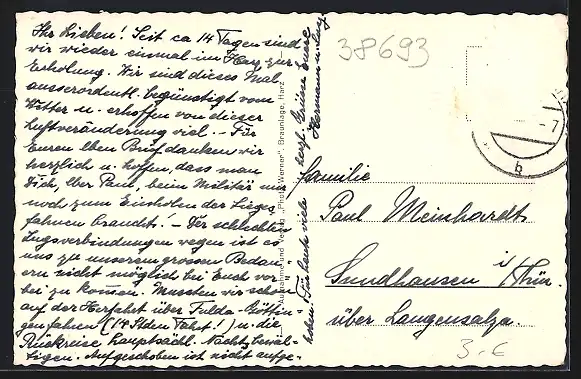 Ihr Lieben! Seit ca 14 Tagen sind
wir wieder einmal im Harz zur
Erholung. Wir sind dieses Mal
ausserordentl. begünstigt vom
Wetter u. erhoffen von dieser
Luftveränderung viel. - Für
Euren lben Brief danken wir
herzlich u. hoffen, dass man
Dich, lber Paul, beim Militär nur
noch zum Einholen der Sieges-
fahnen braucht! - Der schlechten
Zugsverbindungen wegen ist es
uns zu unserem grossen Bedau-
ern nicht möglich bei Euch vor-
bei zu kommen. Mussten wir schon
auf der Herfahrt über Fulda-Göttin-
gen fahren (14 Stden Fahrt!) u. die
Rückreise hauptsächl. Nachts bewäl-
tigen. Aufgeschoben ist nicht aufge-
hoben. Für heute viele herzl. Grüsse Eure
Hermann u.
Aufnahme und Verlag „Photo-Werner", Braunlage, Harz
38693
Familie
Paul Meinhardt
Sundhausen i/Thür.
über Langensalza.
3.6
7
b